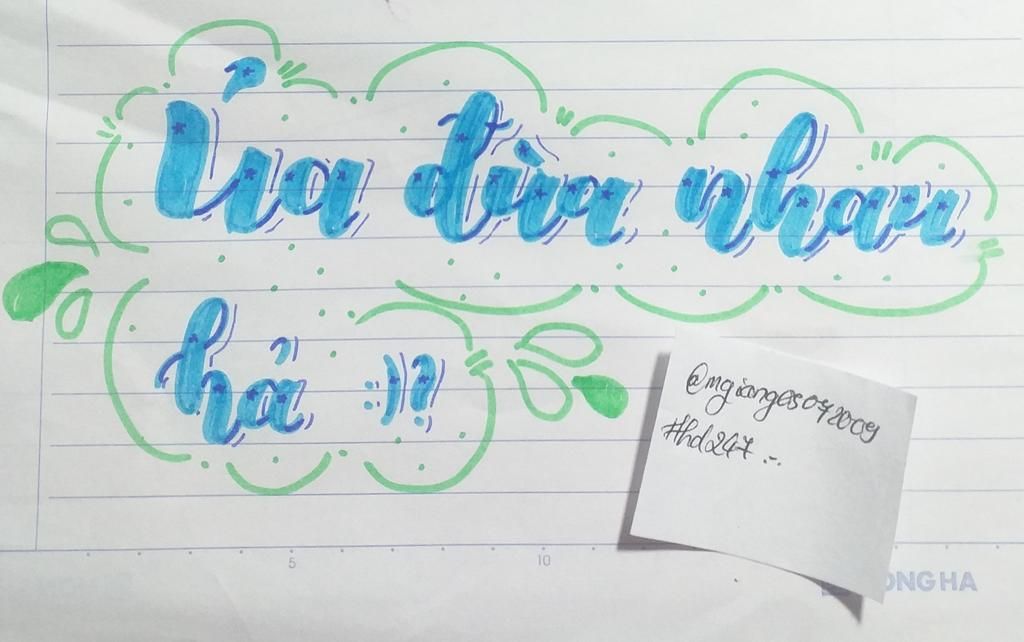 Ủa đùa nhau
hả :)?
#hd247
5 10
ONG HA